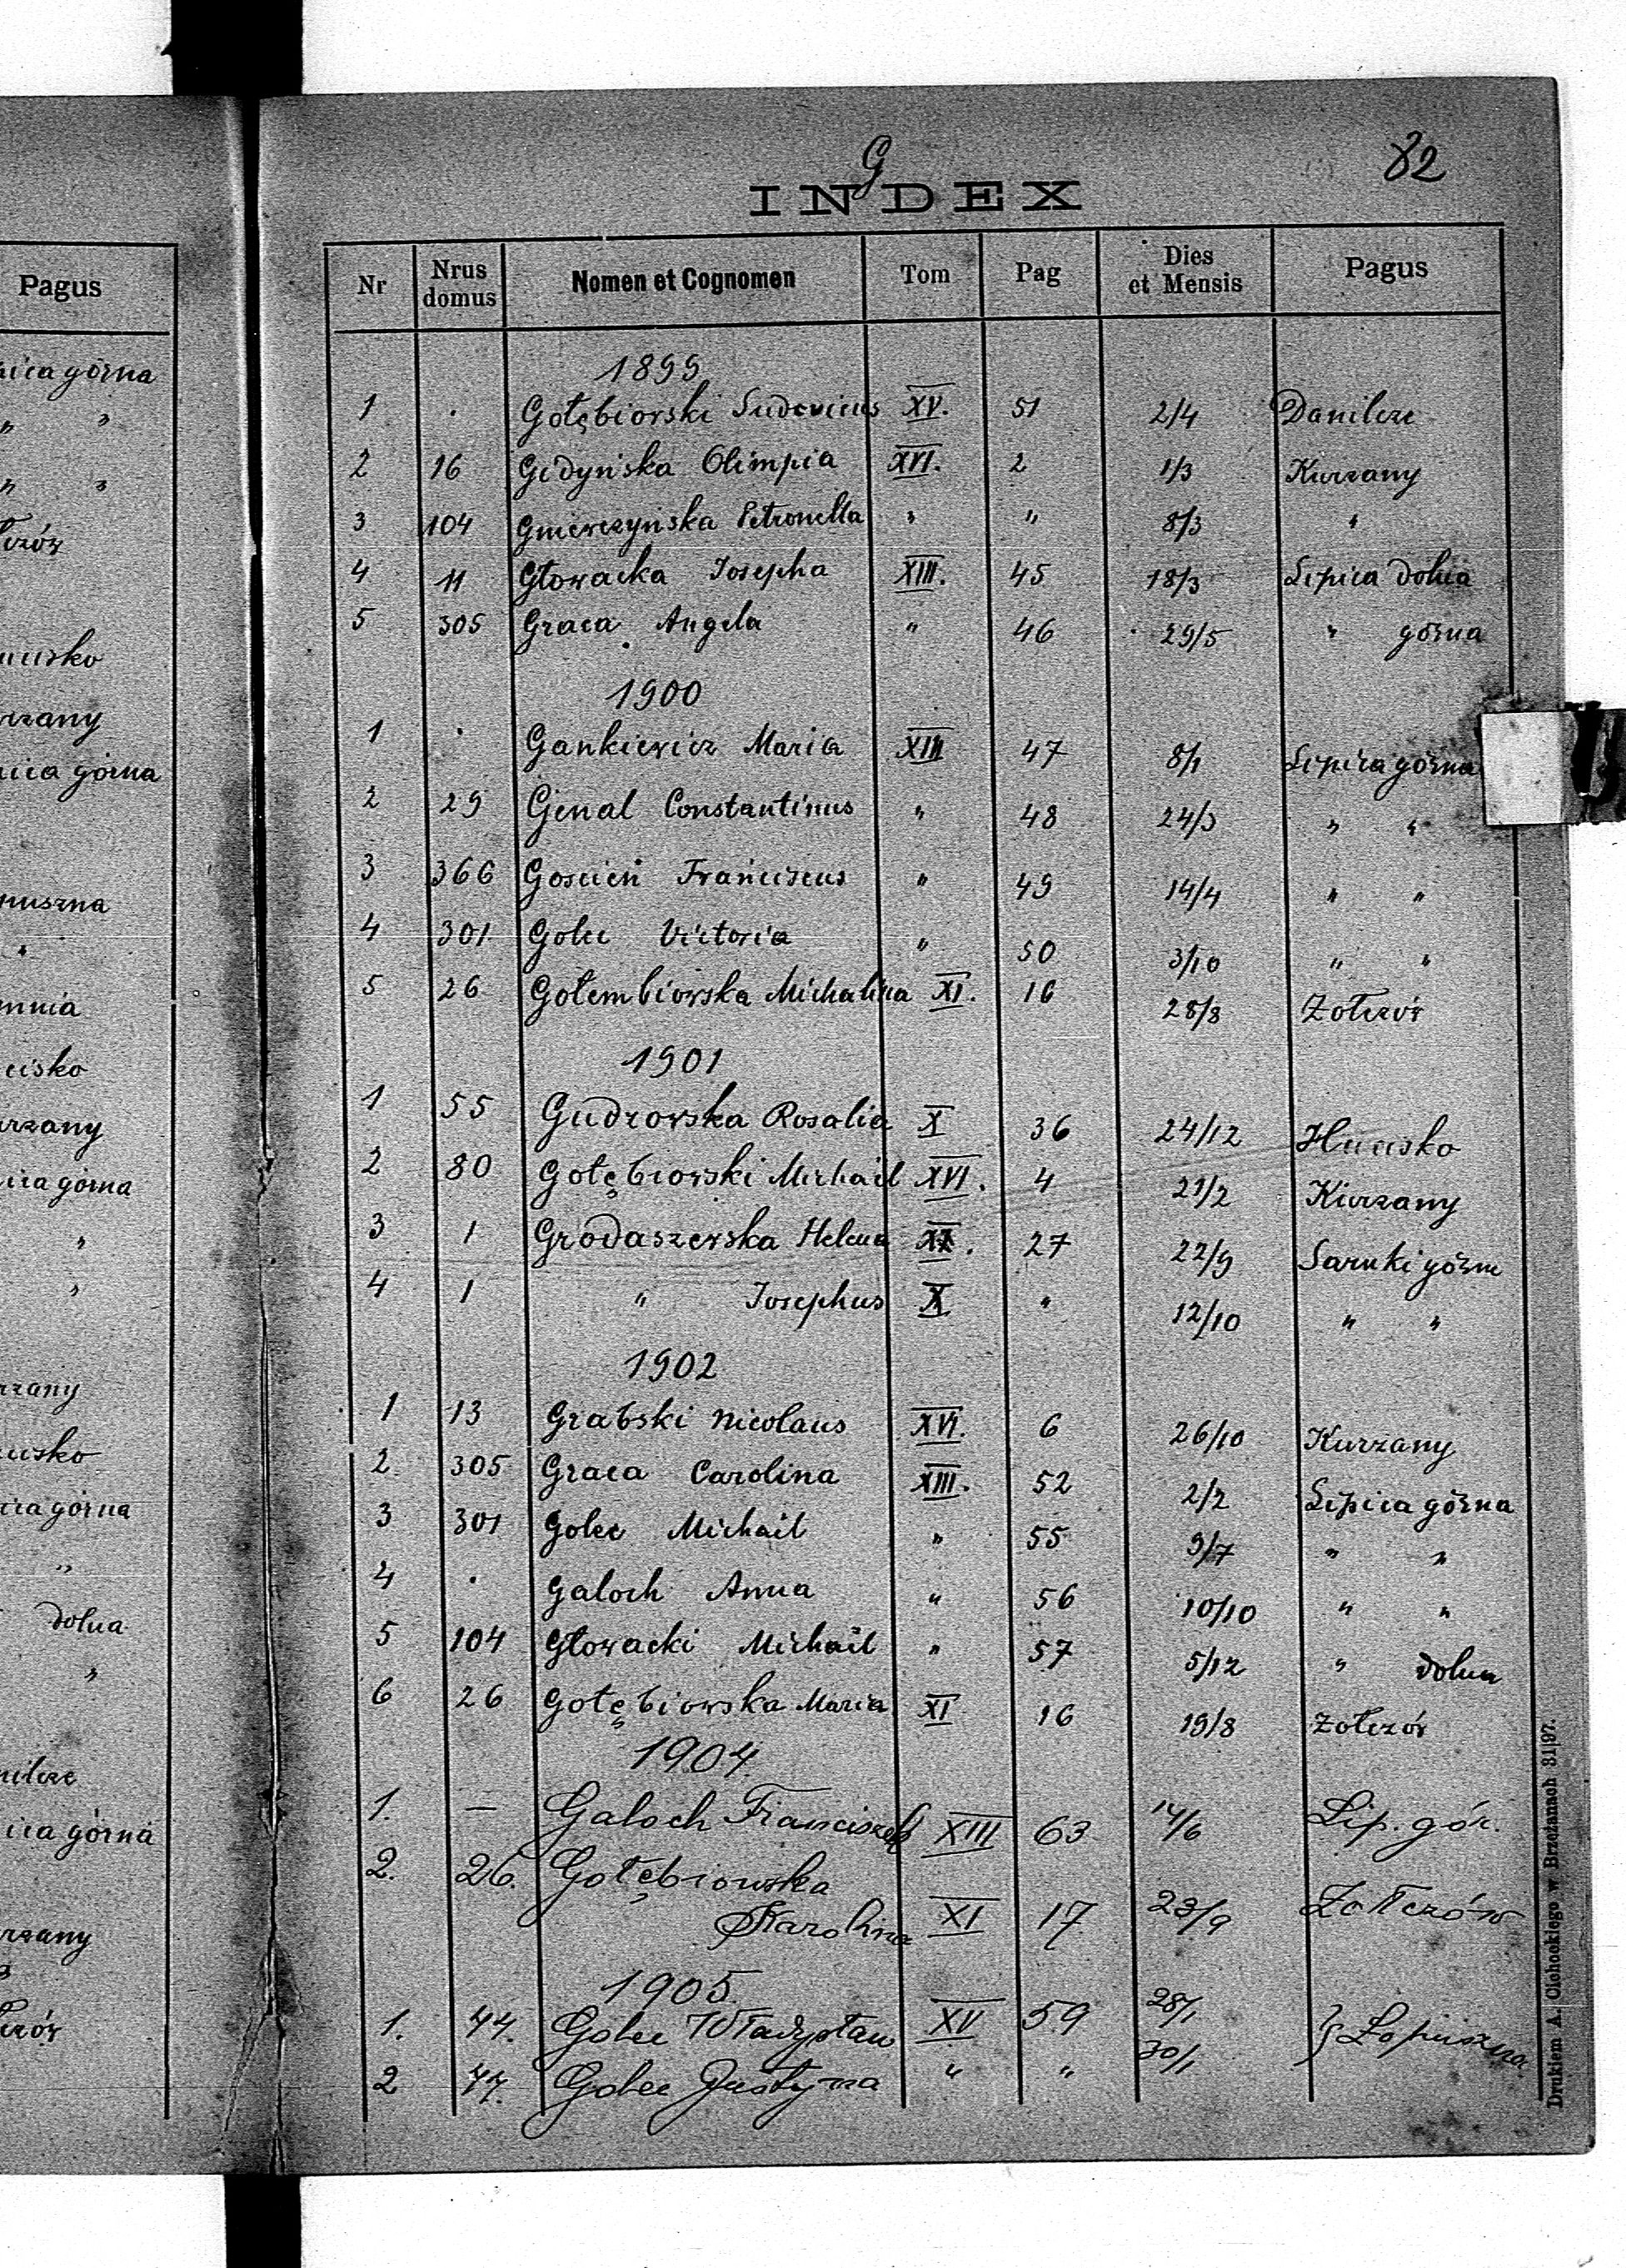 Pagus
górna
„ „
„ „
górna
górna
dolna
„
górna
G
82
INDEX
Nr Nrus domus Nomen et Cognomen Tom Pag Dies et Mensis Pagus
1899
1 . Gołębiowski Ludovicus XV. 51 2/4 Danilcze
2 16 Gidyńska Olimpia XVI. 2 1/3 Kurzany
3 104 Gniewczyńska Petronella „ „ 8/3 „
4 11 Głowacka Josepha XIII. 45 18/3 Lipica dolna
5 305 Graca Angela „ 46 29/5 „ górna
1900
1 . Gankiewicz Maria XIII 47 8/1 Lipica górna
2 29 Gjenal Constantinus „ 48 24/3 „ „
3 366 Goscień Franciscus „ 49 14/4 „ „
4 301 Golec Victoria „ 50 3/10 „ „
5 26 Gołembiowska Michalina XI. 16 28/8 Żołczów
1901
1 55 Gudzowska Rosalia X 36 24/12 Hucisko
2 80 Gołębiowski Michail XVI. 4 21/2 Kurzany
3 1 Grodaszewska Helena 27 22/9 Sarnki górne
4 1 „ Josephus X „ 12/10 „ „
1902
1 13 Grabski Nicolaus XVI. 6 26/10 Kurzany
2 305 Graca Carolina XIII. 52 2/2 Lipica górna
3 301 Golec Michail „ 55 9/7 „ „
4 . Galoch Anna „ 56 10/10 „ „
5 104 Głowacki Michail „ 57 5/12 „ dolna
6 26 Gołębiowska Maria XI 16 19/8 Żołczów
1904.
1. — Galoch Franciszek XIII 63 14/6 Lip. gór.
2. 26. Gołębiowska
Karolina XI 17 23/9 Żołczów
1905
1. 44. Golec Władysław XV 59 28/1 } Łopuszna
2 44. Golec Justyna „ „ 30/1
Drukiem A. Cichockiego w Brzeżanach 31|97.